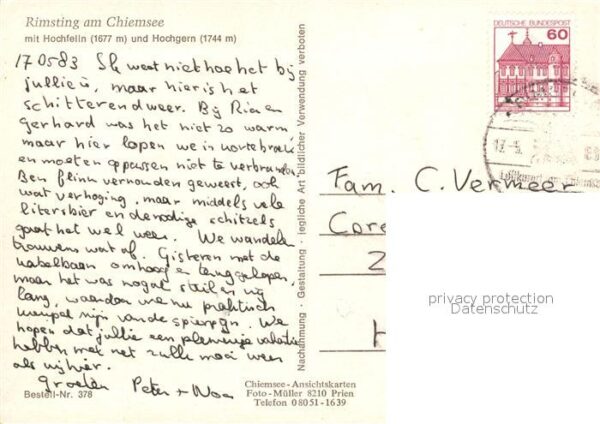 Rimsting am Chiemsee
mit Hochfelln (1677 m) und Hochgern (1744 m)
170583 Ik weet niet hoe het bij
jullie is, maar hier is het
schitterend weer. Bij Ria en
Gerhard was het niet zo warm
maar hier lopen we in
en moeten oppassen niet te verbranden.
Ben flink verkouden geweest, ook
wat verhoging, maar middels vele
liters bier en de nodige schitzels
gaat het wel weer. We wandelen
trouwens wat af. Gisteren met de
kabelbaan omhoog en teruggelopen,
maar het was nogal steil en erg
lang, waardoor we nu praktisch
kreupel zijn van de spierpijn. We
hopen dat jullie een plezierige vakantie
hebben met net zulk mooi weer
als wij hier.
groeten Peter +
Bestell-Nr. 378
Nachahmung · Gestaltung · jegliche Art bildlicher Verwendung verboten
Chiemsee-Ansichtskarten
Foto-Müller 8210 Prien
Telefon 08051-1639
DEUTSCHE BUNDESPOST
60
17.-5.
Fam. C. Vermeer
Core
2
H
privacy protection
Datenschutz